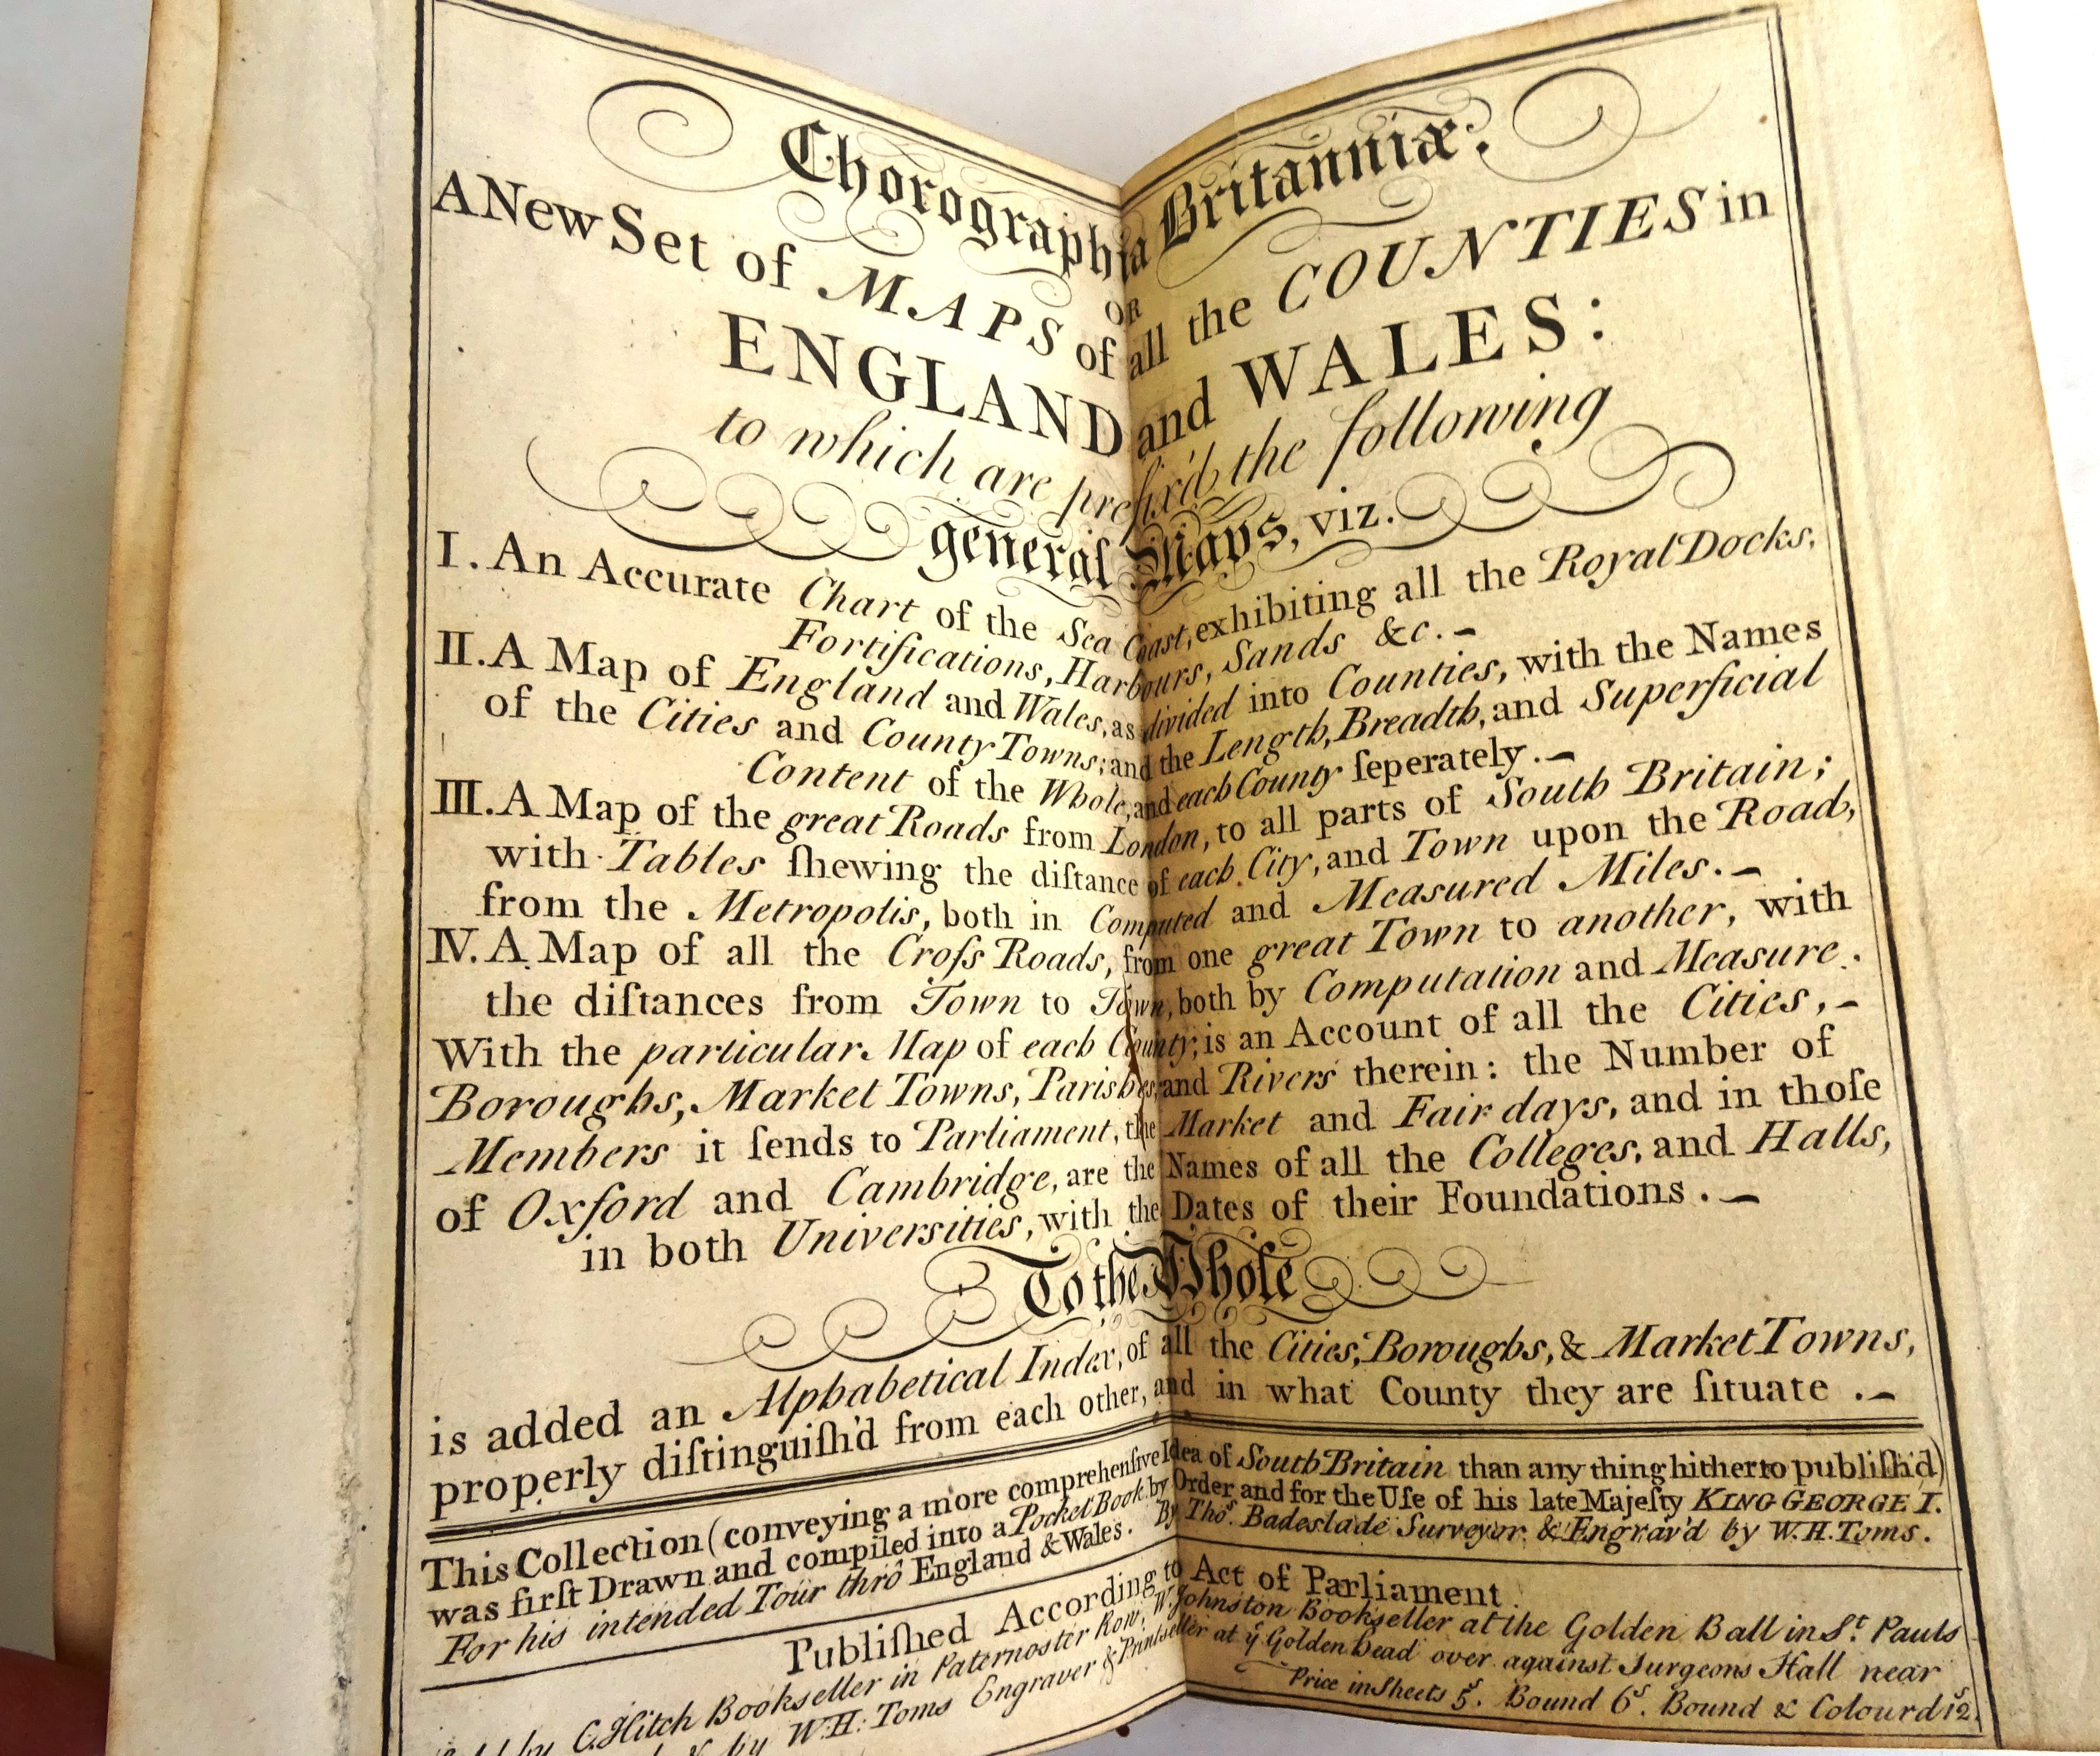 Chorographia Britanniæ:
OR
A New Set of MAPS of all the COUNTIES in
ENGLAND and WALES:
to which are prefix'd the following
general Maps, viz.
I. An Accurate Chart of the Sea Coast, exhibiting all the Royal Docks,
Fortifications, Harbours, Sands &c. –
II. A Map of England and Wales, as divided into Counties, with the Names
of the Cities and County Towns; and the Length, Breadth, and Superficial
Content of the Whole, and each County ſeperately. –
III. A Map of the great Roads from London, to all parts of South Britain;
with Tables ſhewing the diſtance of each City, and Town upon the Road,
from the Metropolis, both in Computed and Measured Miles. –
IV. A Map of all the Croſs Roads, from one great Town to another, with
the diſtances from Town to Town, both by Computation and Measure.
With the particular Map of each County; is an Account of all the Cities, –
Boroughs, Market Towns, Parishes, and Rivers therein: the Number of
Members it ſends to Parliament, the Market and Fair days, and in thoſe
of Oxford and Cambridge, are the Names of all the Colleges, and Halls,
in both Universities, with the Dates of their Foundations. –
To the Whole
is added an Alphabetical Index, of all the Cities, Boroughs, & Market Towns,
properly diſtinguiſh'd from each other, and in what County they are ſituate. –
This Collection (conveying a more comprehenſive Idea of South Britain than any thing hitherto publiſh'd)
was firſt Drawn and compiled into a Pocket Book by Order and for the Uſe of his late Majeſty KING GEORGE I.
For his intended Tour thrô England & Wales. By Thoˢ. Badeslade Surveyor & Engrav'd by W. H. Toms.
Publiſhed According to Act of Parliament.
by C. Hitch Bookseller in Paternoster Row; W. Johnston Bookseller at the Golden Ball in Sᵗ Pauls
& by W. H. Toms Engraver & Printseller at yᵉ Golden Head over against Surgeons Hall near
Price in Sheets 5ˢ. Bound 6ˢ. Bound & Colourd 12ˢ.